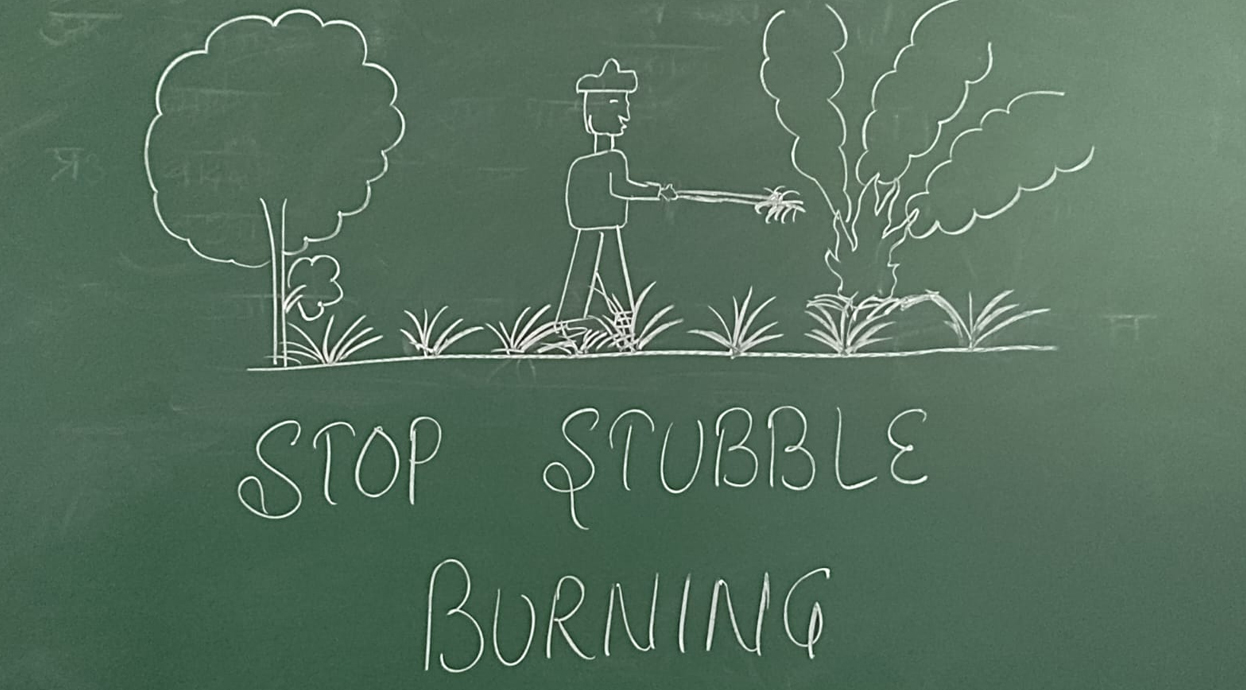 STOP STUBBLE
BURNING